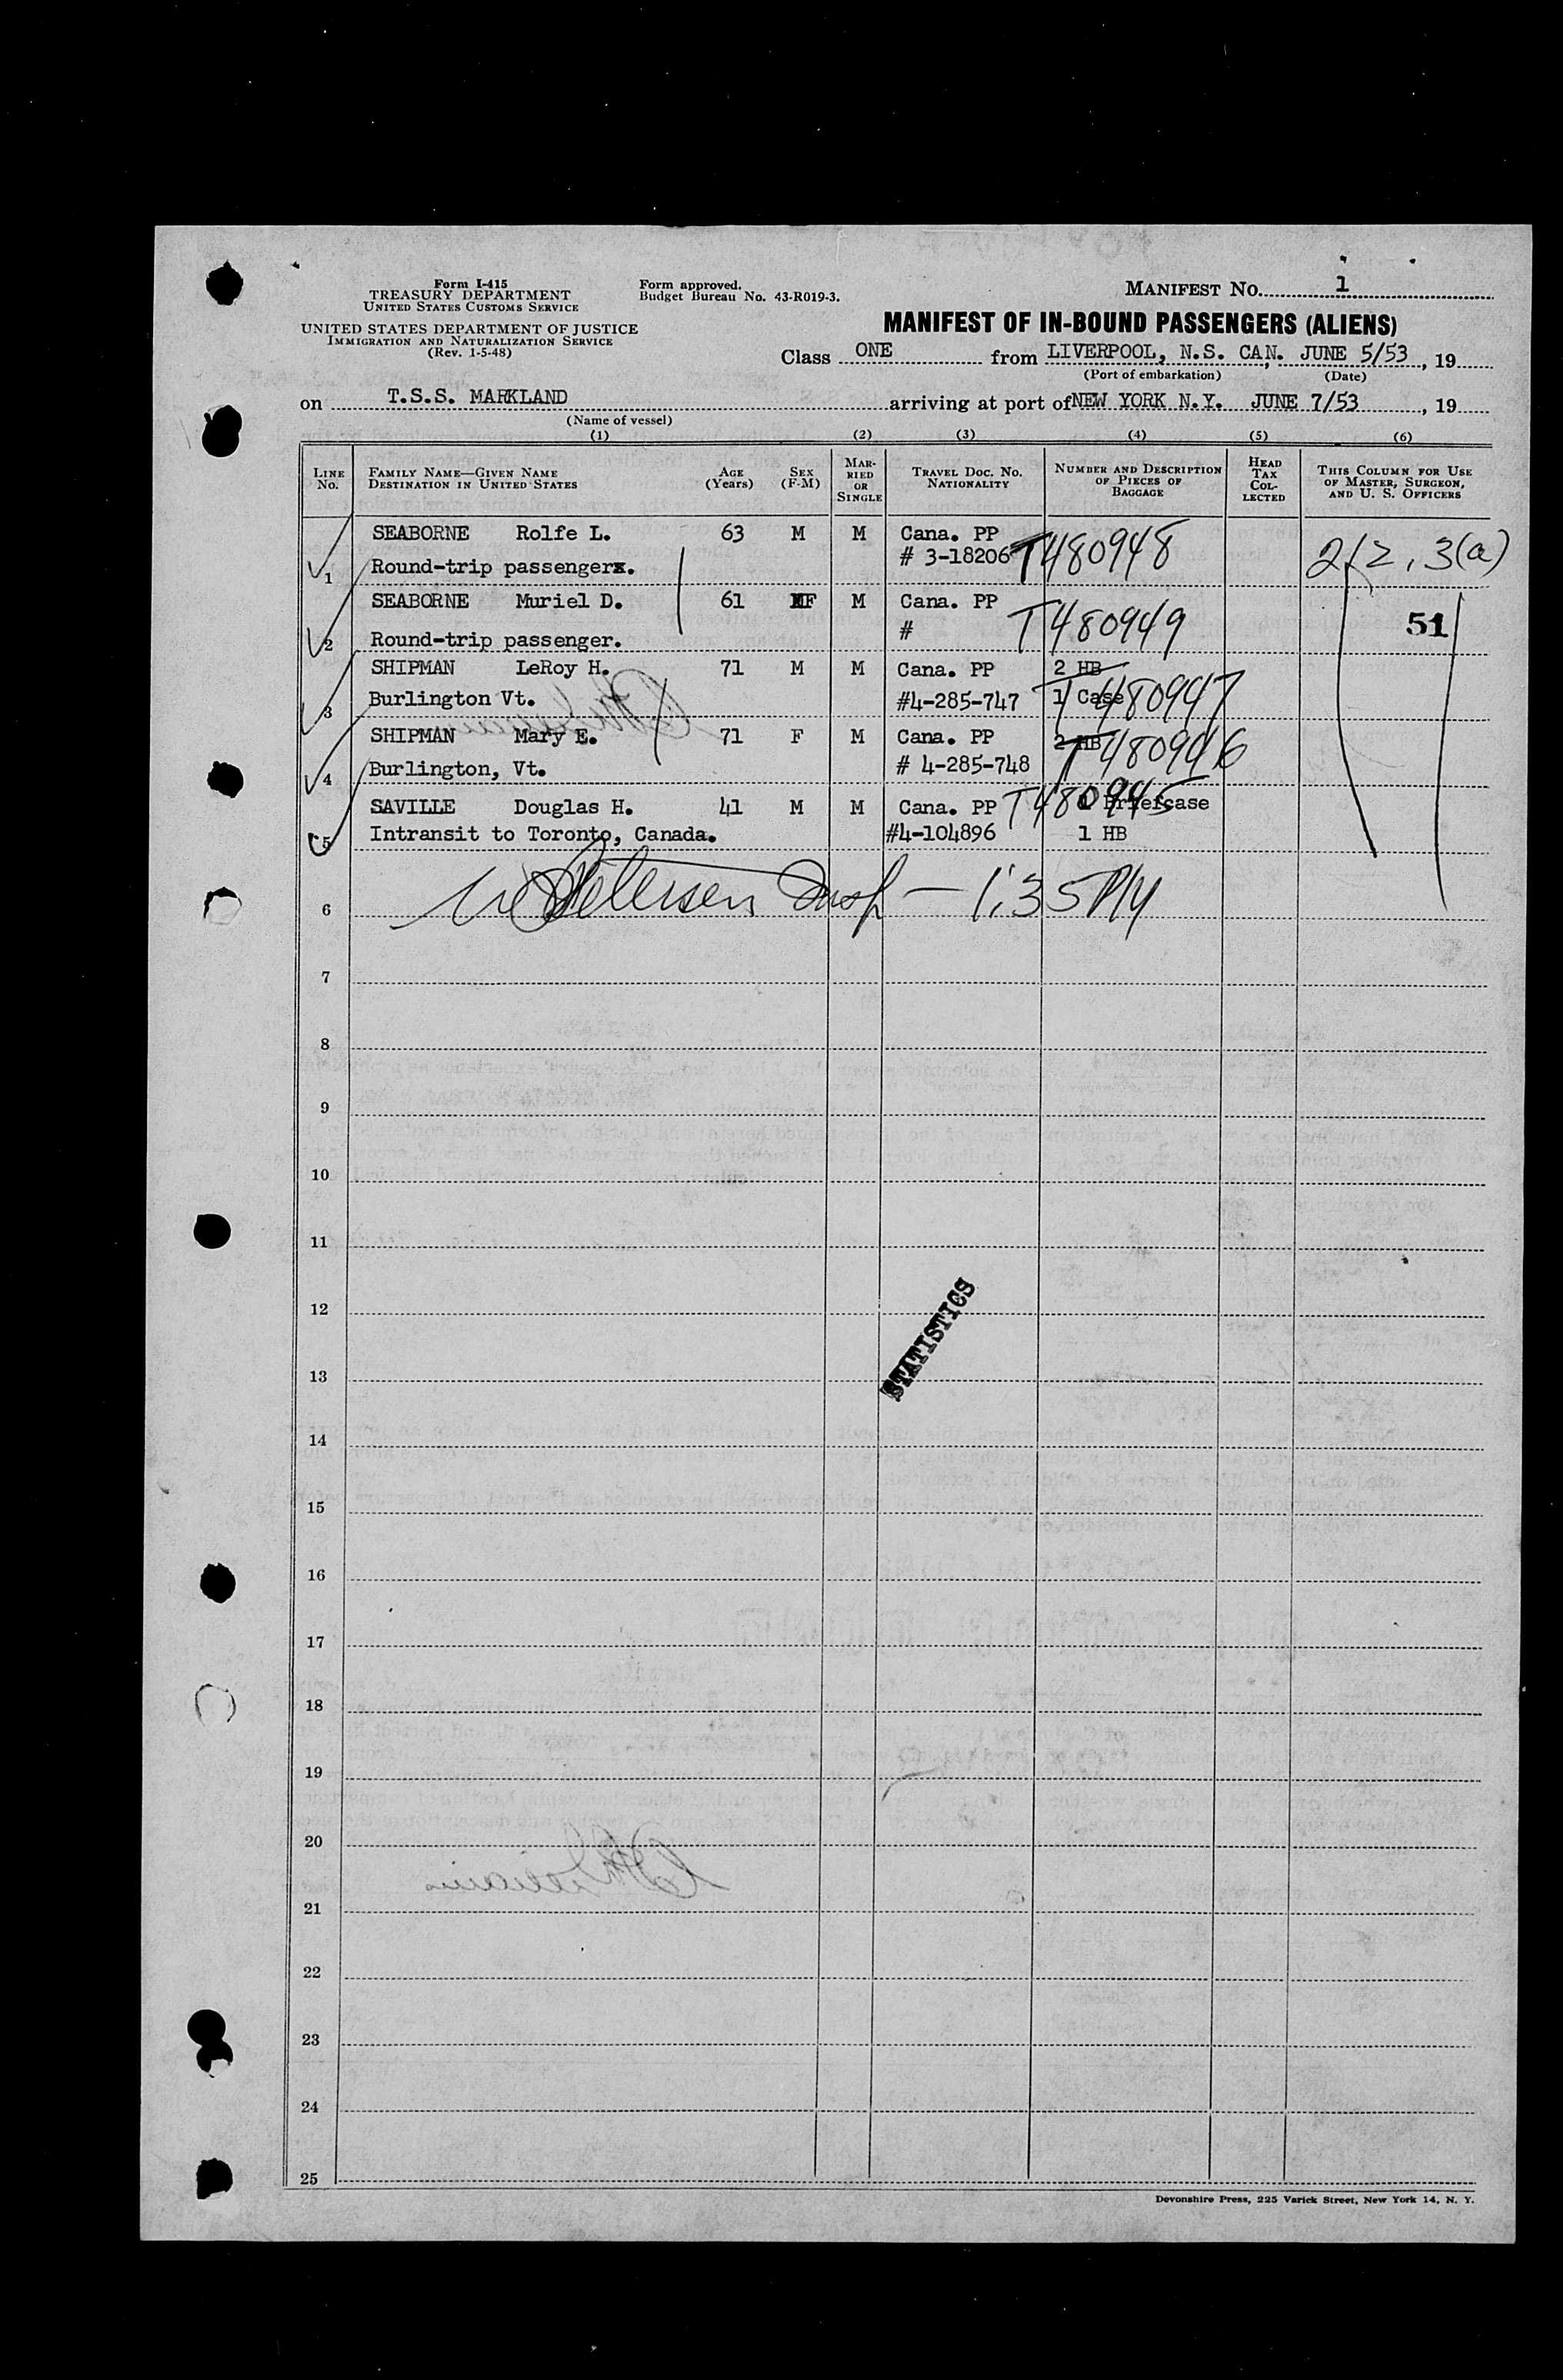 Form I-415
TREASURY DEPARTMENT
UNITED STATES CUSTOMS SERVICE
UNITED STATES DEPARTMENT OF JUSTICE
IMMIGRATION AND NATURALIZATION SERVICE
(Rev. 1-5-48)
Form approved.
Budget Bureau No. 43-R019-3.
MANIFEST NO. 1
MANIFEST OF IN-BOUND PASSENGERS (ALIENS)
Class ONE from LIVERPOOL, N.S. CAN. JUNE 5/53, 19
(Port of embarkation) (Date)
on T.S.S. MARKLAND arriving at port of NEW YORK N.Y. JUNE 7/53, 19
(Name of vessel)
(1) (2) (3) (4) (5) (6)
LINE No. FAMILY NAME—GIVEN NAME DESTINATION IN UNITED STATES AGE (Years) SEX (F-M) MARRIED OR SINGLE TRAVEL DOC. NO. NATIONALITY NUMBER AND DESCRIPTION OF PIECES OF BAGGAGE HEAD TAX COLLECTED THIS COLUMN FOR USE OF MASTER, SURGEON, AND U. S. OFFICERS
SEABORNE Rolfe L. 63 M M Cana. PP T480948
1 Round-trip passengerx. # 3-18206 2/2, 3(a)
SEABORNE Muriel D. 61 F M Cana. PP
2 Round-trip passenger. # T480949 51
SHIPMAN LeRoy H. 71 M M Cana. PP 2 HB
3 Burlington Vt. #4-285-747 1 Case T480947
SHIPMAN Mary E. 71 F M Cana. PP 2 HB T480946
4 Burlington, Vt. # 4-285-748
SAVILLE Douglas H. 41 M M Cana. PP T480945 1 Briefcase
5 Intransit to Toronto, Canada. #4-104896 1 HB
6 Petersen Insp — 1:35 PM
7
8
9
10
11
12
STATISTICS
13
14
15
16
17
18
19
20
21
22
23
24
25
Devonshire Press, 225 Varick Street, New York 14, N. Y.